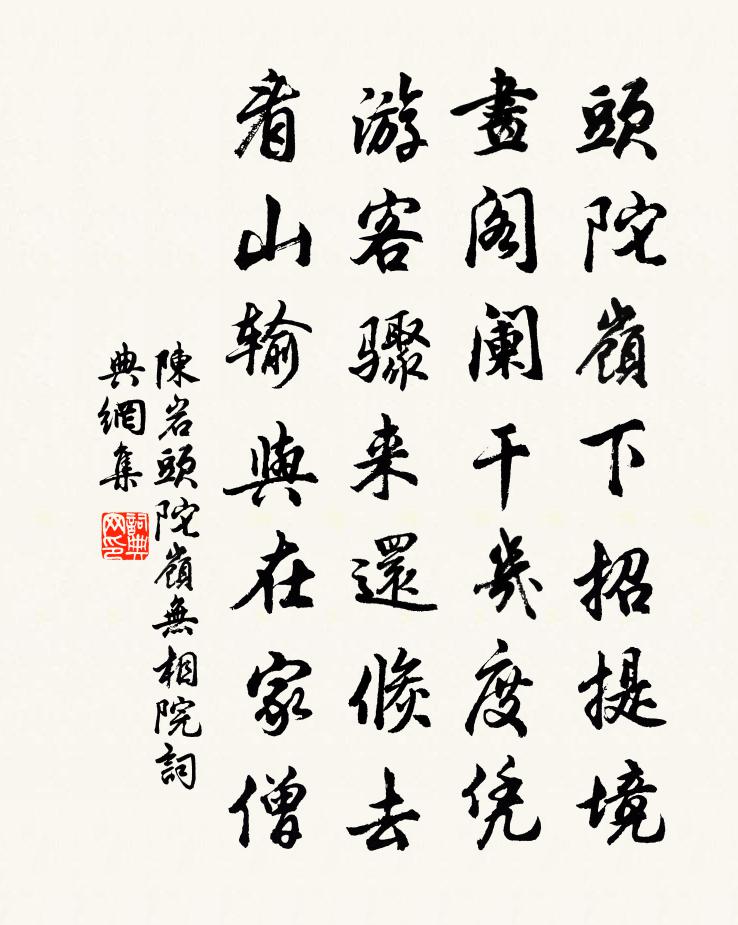 頭陀嶺下招提境
畫閣闌干幾度凭
游客驟来還倏去
看山輸與在家僧
陳岩頭陀嶺無相院詞
典網集
詞典网印